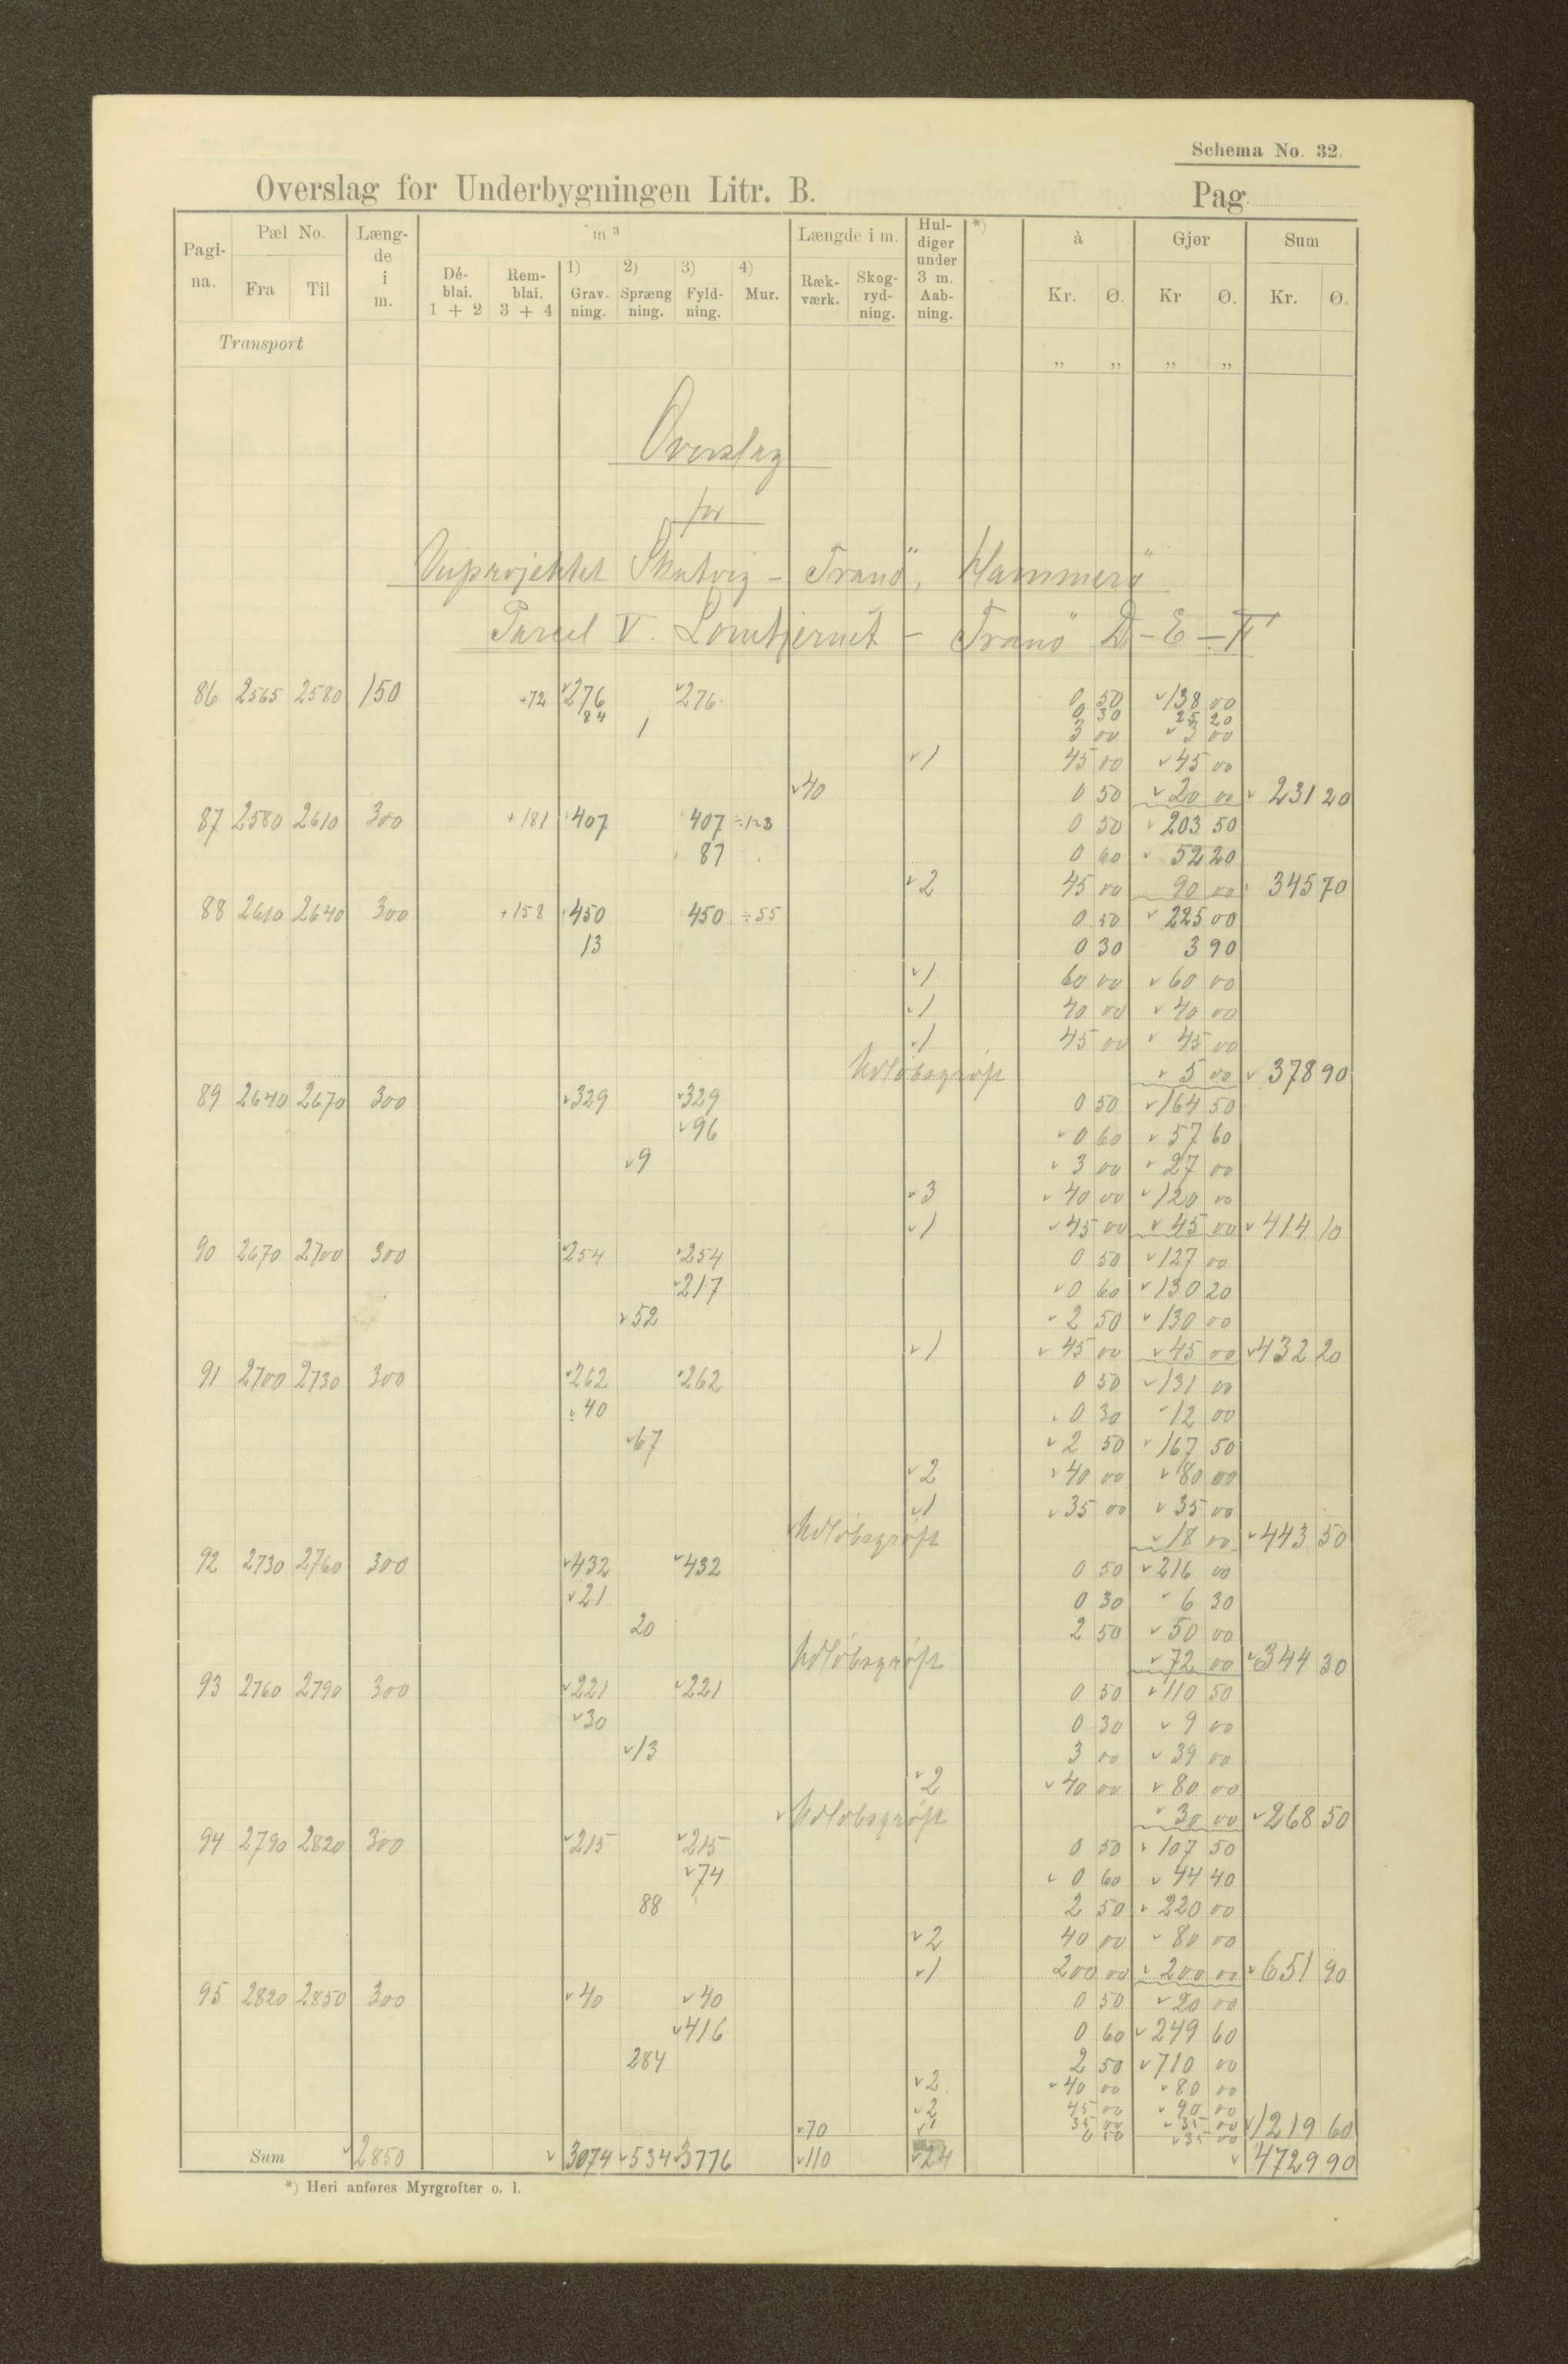 Schema No. 32.
Overslag for Underbygningen Litr. B. Pag.
Pagina. Pæl No. Fra Til Længde i m. m³ Déblai. 1 + 2 Remblai. 3 + 4 1) Gravning. 2) Sprængning. 3) Fyldning. 4) Mur. Længde i m. Rækværk. Skogrydning. Huldiger under 3 m. Aabning. *) à Kr. Ø. Gjør Kr. Ø. Sum Kr. Ø.
Transport „ „ „ „
Overslag
for
Veiprojektet Skutvig - Tranö, Hammerö
Parcel V. Lomtjernet - Tranö D - E - F
86 2565 2580 150 ÷72 276 276 0 50 138 00
84 0 30 25 20
1 3 00 3 00
1 45 00 45 00
40 0 50 20 00 231 20
87 2580 2610 300 +181 407 407 ÷123 0 50 203 50
87 0 60 52 20
2 45 00 90 00 345 70
88 2610 2640 300 +158 450 450 ÷55 0 50 225 00
13 0 30 3 90
1 60 00 60 00
1 40 00 40 00
1 45 00 45 00
Udløbsgrøft 5 00 378 90
89 2640 2670 300 329 329 0 50 164 50
96 0 60 57 60
9 3 00 27 00
3 40 00 120 00
1 45 00 45 00 414 10
90 2670 2700 300 254 254 0 50 127 00
217 0 60 130 20
52 2 50 130 00
1 45 00 45 00 432 20
91 2700 2730 300 262 262 0 50 131 00
40 0 30 12 00
67 2 50 167 50
2 40 00 80 00
1 35 00 35 00
Udløbsgrøft 18 00 443 50
92 2730 2760 300 432 432 0 50 216 00
21 0 30 6 30
20 2 50 50 00
Udløbsgrøft 72 00 344 30
93 2760 2790 300 221 221 0 50 110 50
30 0 30 9 00
13 3 00 39 00
2 40 00 80 00
Udløbsgrøft 30 00 268 50
94 2790 2820 300 215 215 0 50 107 50
74 0 60 44 40
88 2 50 220 00
2 40 00 80 00
1 200 00 200 00 651 90
95 2820 2850 300 40 40 0 50 20 00
416 0 60 249 60
284 2 50 710 00
2 40 00 80 00
2 45 00 90 00
1 35 00 35 00 1219 60
70 0 50 35 00
Sum 2850 3074 534 3776 110 24 4729 90
*) Heri anføres Myrgrøfter o. l.